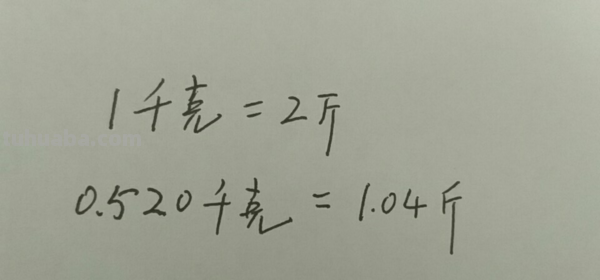 1千克=2斤
0.520千克=1.04斤